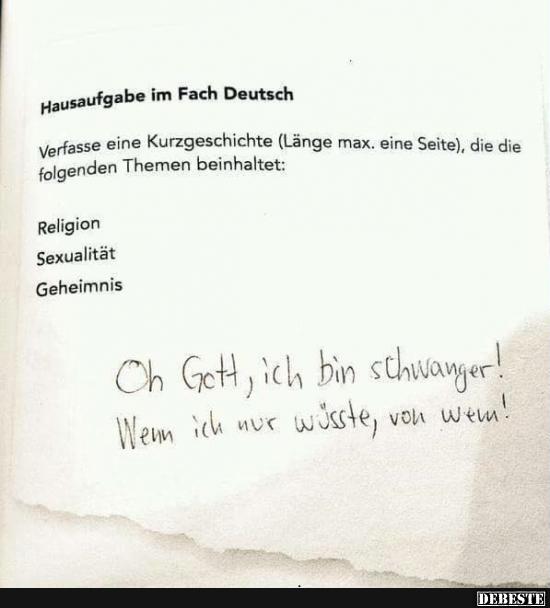 Hausaufgabe im Fach Deutsch
Verfasse eine Kurzgeschichte (Länge max. eine Seite), die die
folgenden Themen beinhaltet:
Religion
Sexualität
Geheimnis
Oh Gott, ich bin schwanger!
Wenn ich nur wüsste, von wem!
DEBESTE